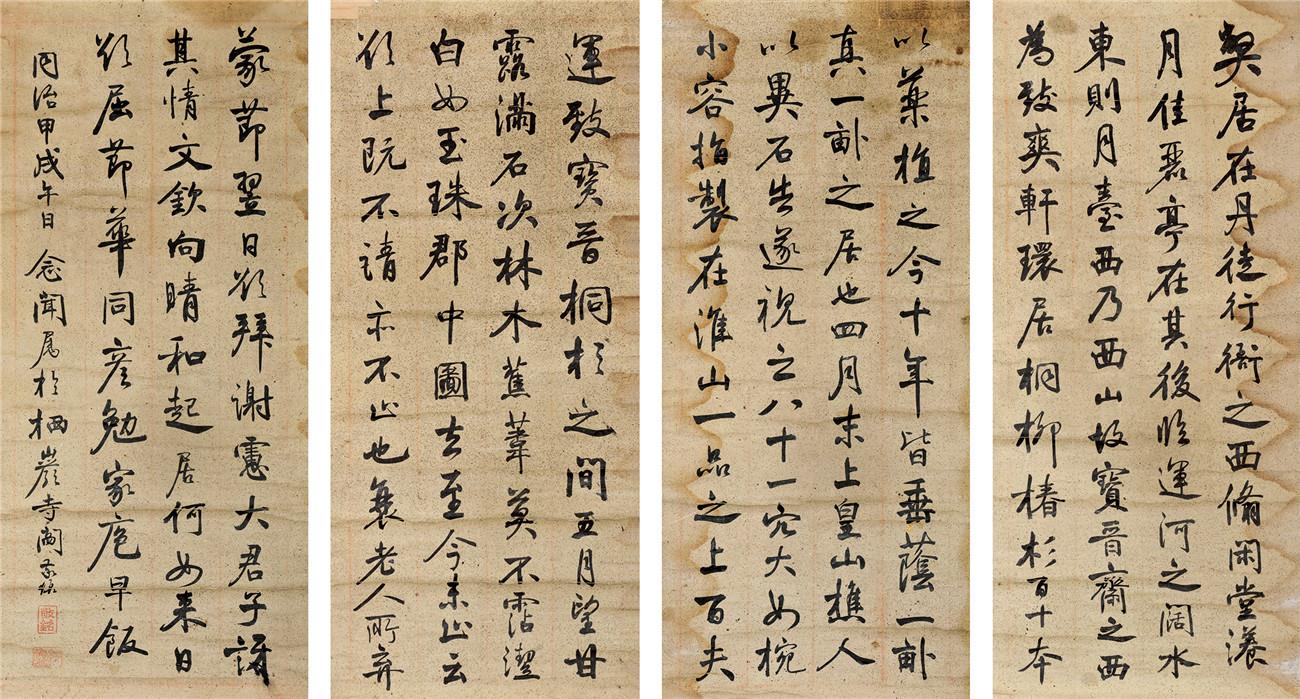 芾居在丹徒行衙之西脩閑堂漾
月佳麗亭在其後臨運河之闊水
東則月臺西乃西山故寶晉齋之西
為致爽軒環居桐柳椿杉百十本
以藥植之今十年皆垂蔭一畝
真一畝之居也四月末上皇山樵人
以異石告遂視之八十一穴大如椀
小容指製在淮山一品之上百夫
運致寶晉桐杉之間五月望甘
露滿石次林木蕉葦莫不霑潔
白如玉珠郡中圖去至今未止云
欲上既不請亦不止也衰老人所弃
蒙節翌日欲拜謝憲大君子
其情文欽向晴和起居何如來日
欲屈節華同彥勉家庖早飯
同治甲戌午日 念聞屬於栖巖寺 閻敬銘